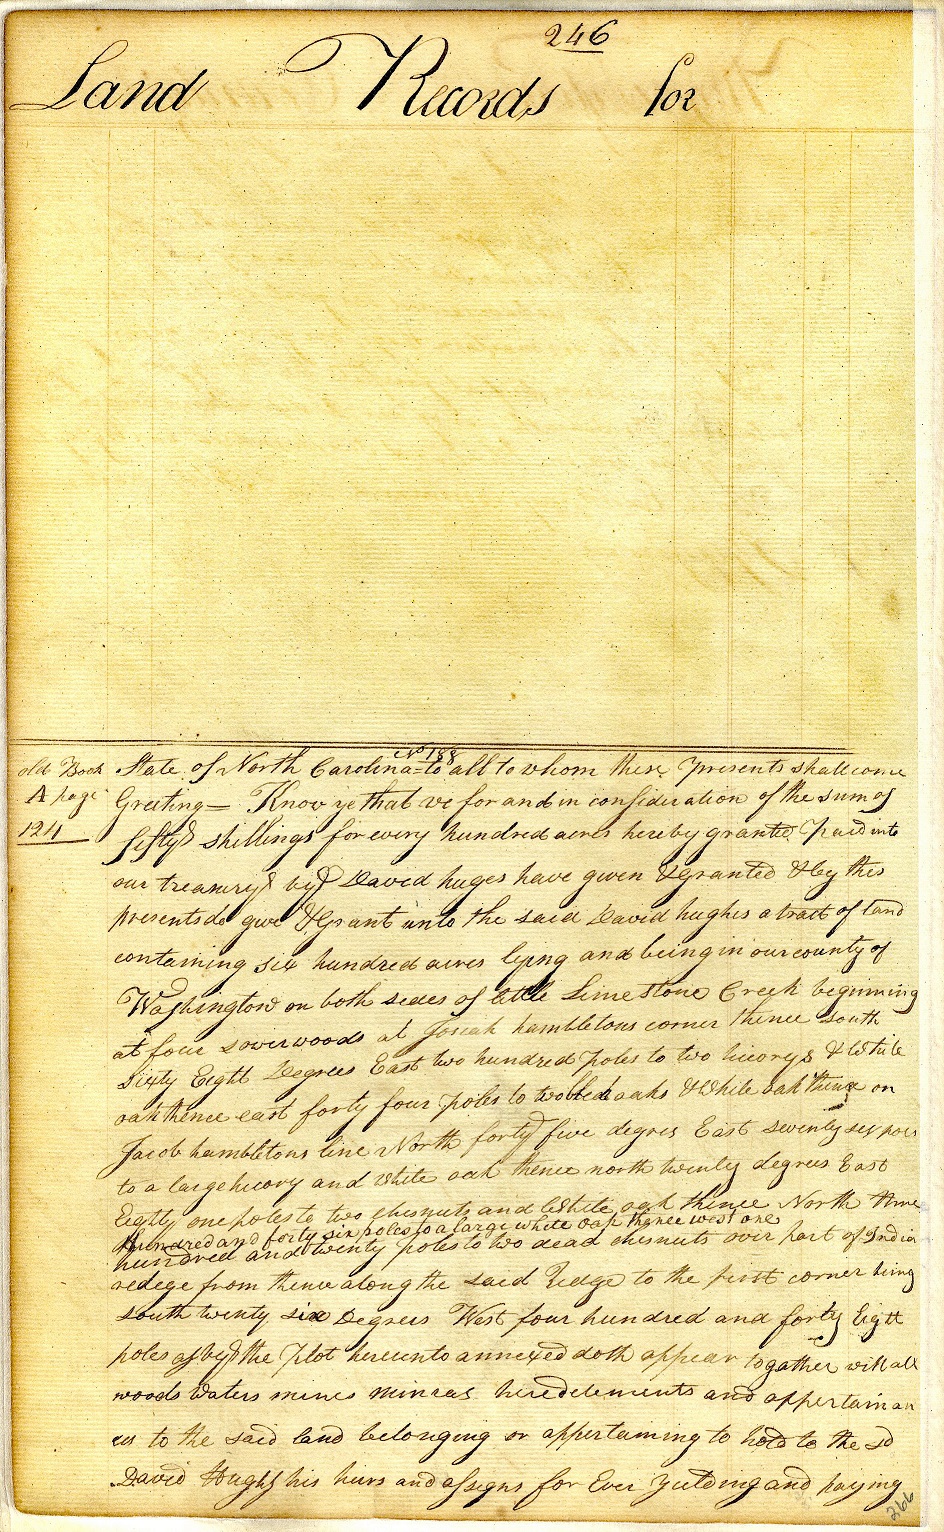 246
Land Records for
old Book
A page
124
No 188
State of North Carolina = to all to whom these presents shall come
Greeting — Know ye that we for and in consideration of the sum of
fifty shillings for every hundred acres hereby granted paid into
our treasury by David huges have given & Granted & by this
presents do give & Grant unto the said David hughes a tract of land
containing six hundred acres lying and being in our county of
Washington on both sides of little Lime Stone Creek beginning
at four sowerwoods at Josiah hambletons corner thence south
Sixty Eight Degrees East two hundred poles to two hicorys & White
oak thence east forty four poles to two black oaks & White oak thence on
Jacob hambletons line North forty five degres East seventy six poles
to a large hicory and white oak thence north twenty degrees East
Eighty one poles to two chesnuts and White oak thence North three
hundred and forty six poles to a large white oak thence west one
hundred and twenty poles to two dead chesnuts over part of Indian
redege from thence along the said Redge to the first corner being
south twenty six Degrees West four hundred and forty Eight
poles as by the plot hereunto annexed doth appear togather with all
woods waters mines minras heredetements and appertainan
ces to the said land belonging or appertaining to hold to the sd
David Hughs his hiers and assigns for Ever yielding and paying
266